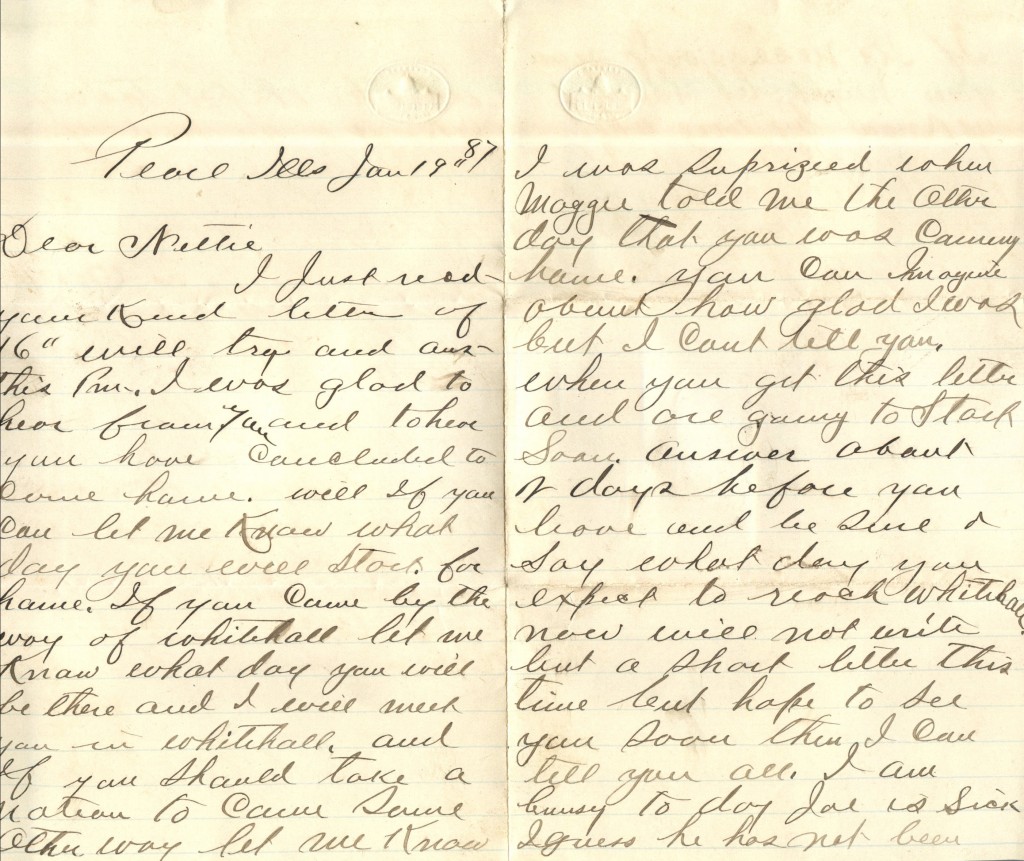 Pearl Ills Jan 19" 87
Dear Nettie
I Just recd
your Kind letter of
16" will try and ans
this Pm. I was glad to
hear from you and to hear
you have concluded to
come home. will If you
can let me Know what
day you will Start for
home. If you Came by the
way of whitehall let me
Know what day you will
be there and I will meet
you in whitehall. and
If you should take a
notion to Come Some
Other way let me Know
I was suprized when
Maggie told me the Other
day that you was Coming
home. you Can Imagine
about how glad I was
but I Cant tell you.
when you get this letter
and are going to Start
Soon. answer about
2 days before you
leave and be sure &
say what day you
expect to reach whitehall.
now will not write
but a short letter this
time but hope to see
you soon then I Can
tell you all. I am
buusy to day Joe is Sick
I guess he has not been